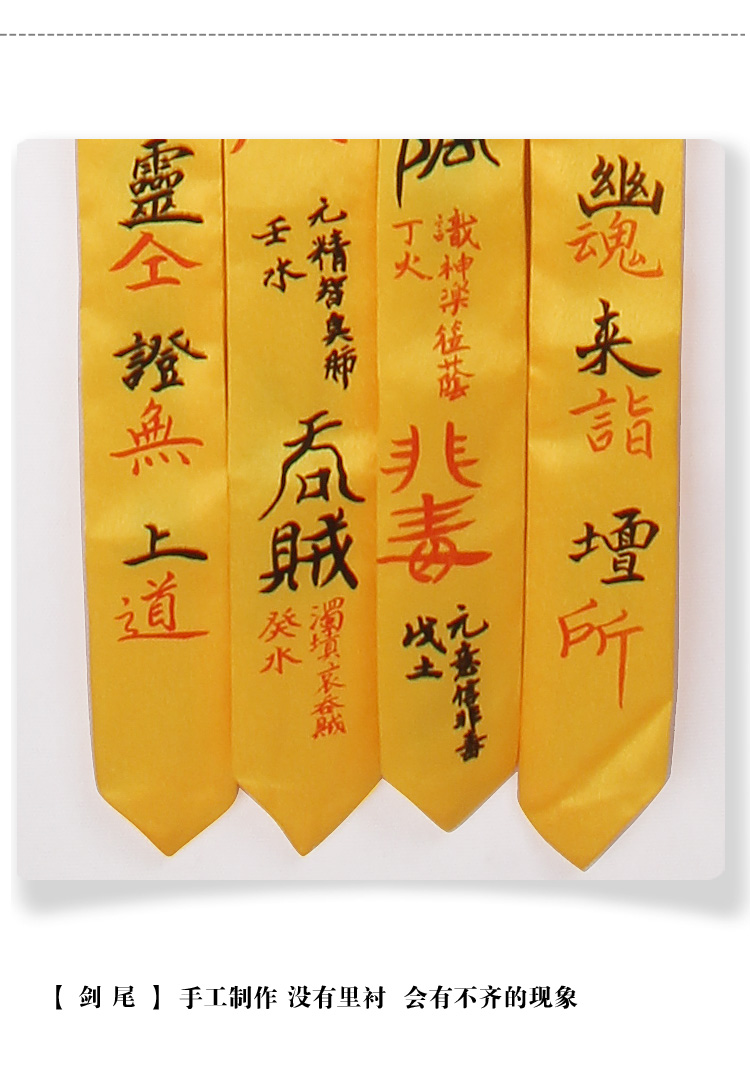 靈仝證無上道
元精智臭肺
壬水
吞賊
濁塡哀吞賊
癸水
識神樂
蔭
丁火
非毒
元意
非毒
戊土
幽魂来詣壇所
【 剑 尾 】 手工制作 没有里衬 会有不齐的现象